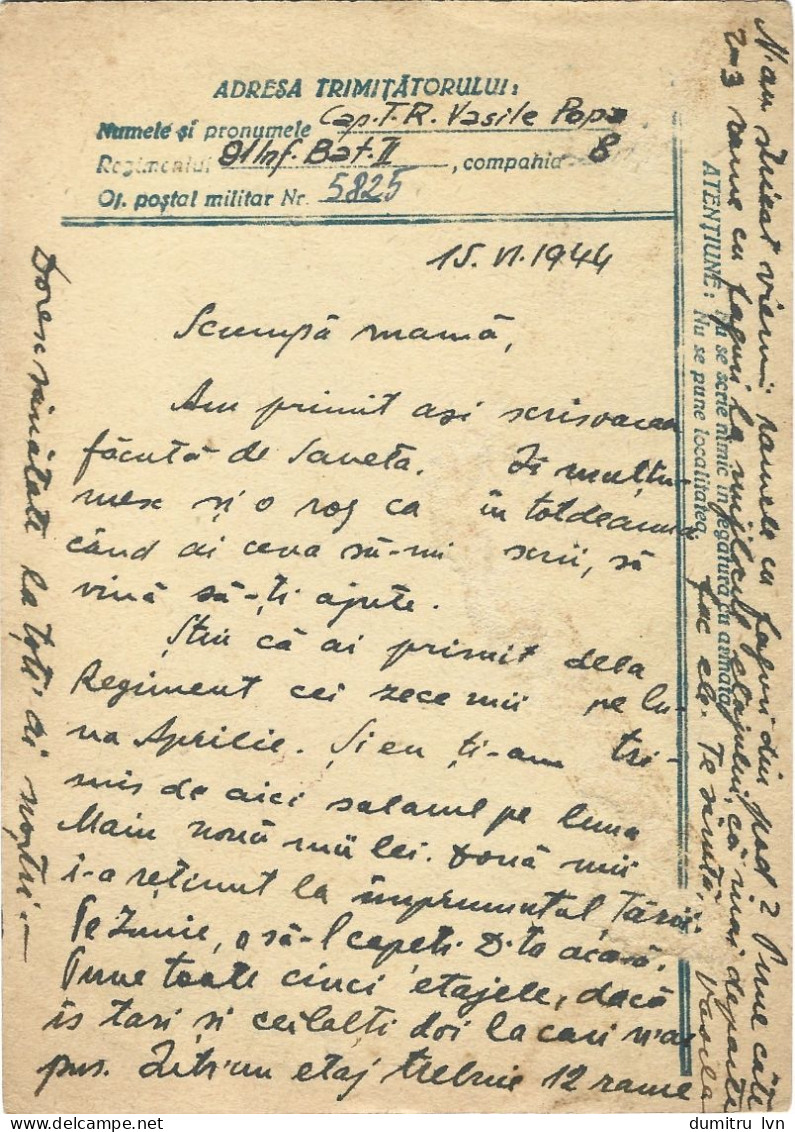 ADRESA TRIMIŢĂTORULUI:
Numele și pronumele Cap. T. R. Vasile Popa
Regimentul 91 Inf. Bat. II, compania 8
Of. poștal militar Nr. 5825
ATENŢIUNE: Nu se scrie nimic în legătură cu armata
Nu se pune localitatea
15. VI. 1944
Scumpă mamă,
Am primit azi scrisoarea
făcută de Saveta. Îi mulțu-
mesc și o rog ca în totdeauna,
când ai ceva să-mi scrii, să
vină să-ți ajute.
Știu că ai primit dela
Regiment cei zece mii pe lu-
na Aprilie. Și eu ți-am tri-
mis de aici salarul pe luna
Maiu nouă mii lei. Două mii
i-a reținut la împrumutul Țării.
Pe Iunie, o să-l capeți D-ta acasă.
Pune toate cinci etajele, dacă
is tari și ceilalți doi la cari n'ai
pus. Într'un etaj trebuie 12 rame
N'au stricat viermii ramele cu faguri din pod? Pune câte
2-3 rame cu faguri la mijlocul etajului, că mai departe
fac ele. Te sărută, Vasile
Doresc sănătate la toți ai noștri.-
dumitru lvn